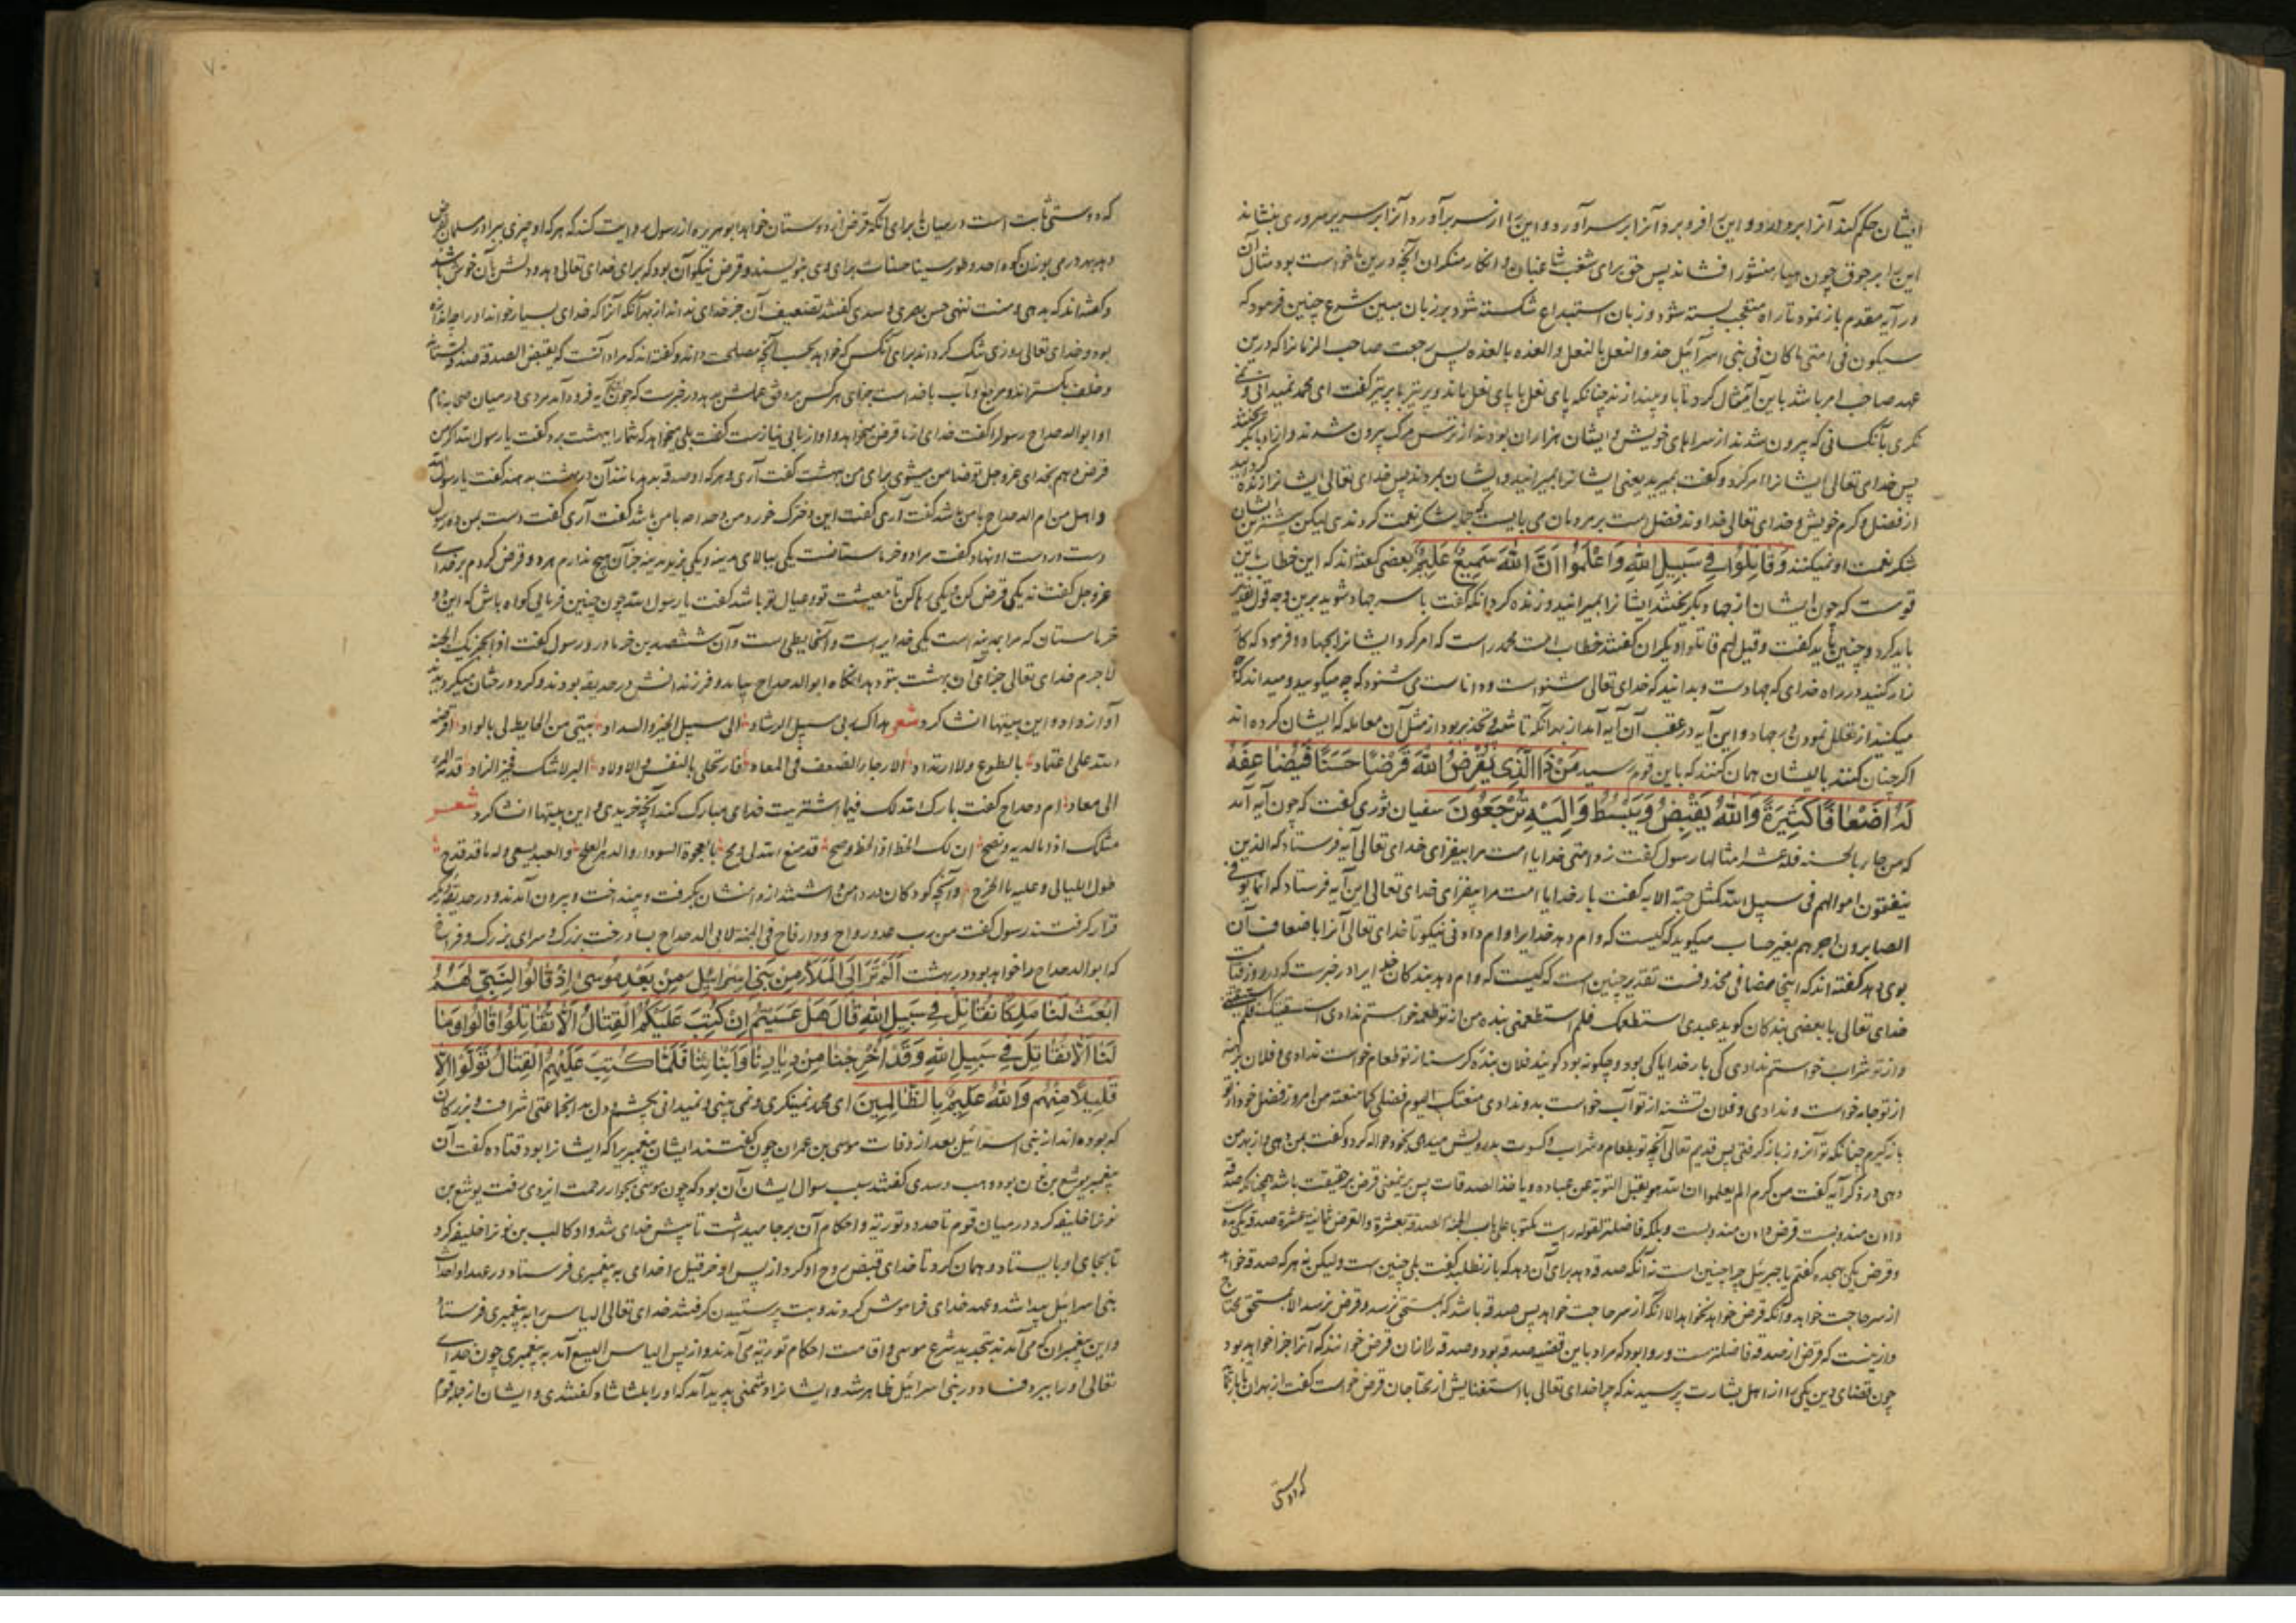 ایشان حکم کند آنرا بردارد و این را فرو برد و آنرا بر سر آورد و این را از سر برآورد و آنرا بر سریر سروری بنشاند
این را بر جوق چون هباء منثور افشاند پس حق برای شغب شاغبان و انکار منکران آنچه درین ما خواست بود مثال آن
در آیه مقدم باز نمود تا راه متعجب بسته شود و زبان استبداع شکسته شود بر زبان مبین شرع چنین فرمود که
سیکون فی امتی ما کان فی بنی اسرائیل حذو النعل بالنعل و القذه بالقذه پس رجعت صاحب الزمانرا که درین
عهد صاحب امر باشد باین آیه مثال کرد تا باو پندازند چنانکه پای نعل با پای نعل ماند و پر تیر با پر تیر گفت ای محمد نمیدانی و نمی
نگری بآنکسانی که بیرون شدند از سراهای خویش و ایشان هزاران بودند از ترس مرگ بیرون شدند و از وبا بگریختند
پس خدای تعالی ایشانرا امر کرد و گفت بمیرید یعنی ایشانرا بمیرانید و ایشان بمردند پس خدای تعالی ایشانرا زنده گردانید
از فضل و کرم خویش و خدای تعالی خداوند فضل است بر مردمان می بایست که بجای شکر نعمت کردندی لیکن بیشترین ایشان
شکر نعمت او نمیکنند وَقَاتِلُوا فِي سَبِيلِ اللهِ وَاعْلَمُوا اَنَّ اللهَ سَمِيعٌ عَلِيمٌ بعضی گفته اند که این خطاب باین
قومست که چون ایشان از جهاد بگریختند ایشانرا بمیرانید و زنده گردانید گفت با سر جهاد شوید برین وجه قول تقدیر
باید کرد و چنین باید گفت و قیل لهم قاتلوا و دیگران گفتند خطاب امت محمد راست که امر کرد ایشانرا بجهاد و فرمود که کا
زار کنید در راه خدای که جهادست و بدانید که خدای تعالی شنواست و داناست می شنود که چه میگویید و میداند که
میکنید از تعلل نمودن بجهاد و این آیه در عقب آن آیه آمد از بهر آنکه تا شعی و تحذیر بود از مثل آن معامله که ایشان کرده اند
اگر چنان کنند بایشان همان کنند که باین قوم رسید مَنْ ذَا الَّذِي يُقْرِضُ اللهَ قَرْضًا حَسَنًا فَيُضَاعِفَهُ
لَهُ اَضْعَافًا كَثِيرَةً وَاللهُ يَقْبِضُ وَيَبْسُطُ وَاِلَيْهِ تُرْجَعُونَ سفیان ثوری گفت که چون آیه آمد
که من جاء بالحسنه فله عشر امثالها رسول گفت زد امتی خدایا امت مرا بیفزای خدای تعالی آیه فرستاد که الذین
ینفقون اموالهم فی سبیل الله کمثل حبة الایه گفت بار خدایا امت مرا بیفزای خدای تعالی این آیه فرستاد که انما یوفی
الصابرون اجرهم بغیر حساب میگوید که کیست که وام دهد خدایرا وام دادنی نیکو تا خدای تعالی آنرا باضعاف آن
بوی دهد گفته اند که اینجا مضافی محذوفست تقدیر چنین است که کیست که وام دهد بندگان خدایرا در خبرست که در روز قیامت
خدای تعالی با بعضی بندگان گوید عبدی استطعمتک فلم تطعمنی بنده من از تو طعام خواستم ندادی استسقیتک فلم
و از تو شراب خواستم ندادی کی بار خدایا کی بود و چگونه بود گویند فلان بنده گرسنه از تو طعام خواست ندادی و فلان برهنه
از تو جامه خواست و ندادی و فلان تشنه از تو آب خواست بدو ندادی منعتک الیوم فضلی کما منعته من امروز فضل خود از تو
باز گیرم چنانکه تو آنروز باز گرفتی پس قدیم تعالی آنچه تو بطعام و شراب و کسوت بدرویش میدهی بخود حواله کرد و گفت بمن دهی و از بهر من
دهی در ذکر آیه گفت من کرم الم یعلموا ان الله هو یقبل التوبة عن عباده و یاخذ الصدقات پس بر نمعنی قرض بر حقیقت باشد همچنانکه صدقه
دادن مندوبست قرض دادن مندوبست و بلکه فاضلتر لقوله رایت مکتوبا علی باب الجنه الصدقة بعشرة و القرض ثمانیة عشرة صدقه یکی بده
و قرض یکی بهجده گفتم یا جبرئیل چرا چنین است نه آنکه صدقه دهد برای آن دهد که باز نطلبد گفت بلی چنین است ولیکن نه هر که صدقه خواهد
از سر حاجت خواهد و آنکه قرض خواهد نخواهد الا آنکه از سر حاجت خواهد پس صدقه باشد که بمستحق نرسد و قرض نرسد الا بمستحق محتاج
و ازینست که قرض از صدقه فاضلترست و روا بود که مراد باین قضیه صدقه بود و صدقه را از آن قرض خوانند که آنرا جزا خواهد بود
چون قضای دین یکی را از اهل بشارت پرسیدند که چرا خدای تعالی با استغنایش از محتاجان قرض خواست گفت از بهر آن تا بدانند
که دوستی
که دوستی ثابت است در میان ما برای آنکه قرض از دوستان خواهند ابو هریره از رسول روایت کند که هر که او چیزی ببرادر مسلمان بقرض
دهد بهر درمی بوزن کوه احد و طور سینا حسنات برای وی بنویسند و قرض نیکو آن بود که برای خدای تعالی دهد و دلش بآن خوش باشد
و گفته اند که بدهی و منت ننهی حسن بصری و سدی گفتند تضعیف آن جز خدای نداند از بهر آنکه آنرا که خدای بسیار خواند او را چه اندازه
بود و خدای تعالی روزی تنگ کرداند برای آنکس که خواهد بحسب آنچه مصلحت داند و گفته اند که مراد آنست که یقبض الصدقه صدقه بستاند
و خلف بگستراند و مرجع و مآب با خداست جزای هر کس بر وفق عملش بدهد در خبرست که چون این آیه فرود آمد مردی در میان صحابه نام
او ابو الدحداح رسولرا گفت خدای از ما قرض میخواهد و او از ما بی نیازست گفت بلی میخواهد که شما را بهشت برد گفت یا رسول الله اگر من
قرض دهم بخدای عزوجل تو ضامن میشوی برای من بهشت گفت آری و هر که او صدقه بدهد مانند آن در بهشت بدهند گفت یا رسول الله
و اهل من ام الدحداح با من باشد گفت آری گفت این دخترک خورد من دحداحه با من باشد گفت آری گفت دست بمن ده رسول
دست در دست او نهاد گفت مرا دو خرماستانست یکی ببالای مدینه و یکی بزیر مدینه جز آن هیچ ندارم هر دو قرض کردم بر خدای
عزوجل گفت نه یکی قرض کن و یکی رها کن تا معیشت تو و عیال تو باشد گفت یا رسول الله چون چنین فرمائی گواه باش که این دو
خرماستان که مرا بمدینه است یکی خدایراست و آنحایطی است و آن ششصد بن خرما دارد رسول گفت اذا یجزیک الجنه
لا جرم خدای تعالی جزای آن بهشت بتو دهد آنگاه ابو الدحداح بیامد و فرزندانش در حدیقه بودند و گرد درختان میگردیدند
آواز داد و این بیتها انشا کرد شعر هداک ربی سبیل الرشاد الی سبیل الخیر و السداد بینی من الحایط لی بالواد اقرضته
الله علی اعتماد بالطوع و لا ارتداد الا رجاء الضعف فی المعاد فارتحلی بالنفس و الاولاد البر لا شک فخیر الزاد قدمه المرء
الی معاد ام دحداح گفت بارک الله لک فیما اشتریت خدای مبارک کند آنچه خریدی و این بیتها انشا کرد شعر
مثلک ادی ما لدیه و نصح ان لک الحظ اذا الحظ وضح قد متع الله لی و منح بالعجوة السوداء و الزهو البلح و العبد یسعی و له ما قد کدح
طول اللیالی و علیه ما اجترح و آنچه کودکان در دامن داشتند از دامنشان بگرفت و بینداخت و بیرون آمدند و در حدیقه دیگر
قرار گرفتند رسول گفت من رب عذق رداح و دار فیاح فی الجنة لابی الدحداح بسا درخت بزرگ و سرای بزرگ و فراخ
که ابو الدحداح را خواهد بود در بهشت اَلَمْ تَرَ اِلَى الْمَلَاِ مِنْ بَنِي اِسْرَائِيلَ مِنْ بَعْدِ مُوسَى اِذْ قَالُوا لِنَبِيٍّ لَهُمُ
ابْعَثْ لَنَا مَلِكًا نُقَاتِلْ فِي سَبِيلِ اللهِ قَالَ هَلْ عَسَيْتُمْ اِنْ كُتِبَ عَلَيْكُمُ الْقِتَالُ اَلَّا تُقَاتِلُوا قَالُوا وَمَا
لَنَا اَلَّا نُقَاتِلَ فِي سَبِيلِ اللهِ وَقَدْ اُخْرِجْنَا مِنْ دِيَارِنَا وَاَبْنَائِنَا فَلَمَّا كُتِبَ عَلَيْهِمُ الْقِتَالُ تَوَلَّوْا اِلَّا
قَلِيلًا مِنْهُمْ وَاللهُ عَلِيمٌ بِالظَّالِمِينَ ای محمد نمینگری و نمی بینی و نمیدانی بچشم دل بدان جماعتی اشراف و بزرگان
که بوده اند از بنی اسرائیل بعد از وفات موسی بن عمران چون گفتند ایشان پیغمبریرا که ایشانرا بود قتاده گفت آن
پیغمبر یوشع بن نون بود و وهب و سدی گفتند سبب سوال ایشان آن بود که چون موسی بجوار رحمت ایزدی رفت یوشع بن
نونرا خلیفه کرد در میان قوم تا حدود توریة و احکام آن بر جا میداشت تا پیش خدای شد و او کالب بن یوفنا را خلیفه کرد
تا بجای او بایستاد و همان کرد تا خدای قبض روح او کرد از پس او حزقیل را خدای به پیغمبری فرستاد و در عهد او احداث
بنی اسرائیل پیدا شد و عهد خدای فراموش کردند و بت پرستیدن گرفتند خدای تعالی الیاس را به پیغمبری فرستاد
و این پیغمبران که می آمدند بتجدید شرع موسی و اقامت احکام توریة می آمدند و از پس الیاس الیسع آمد به پیغمبری چون خدای
تعالی او را ببرد فساد در بنی اسرائیل ظاهر شد و ایشانرا دشمنی پدید آمد که او را بلشاثا گفتندی و ایشان از جمله قوم